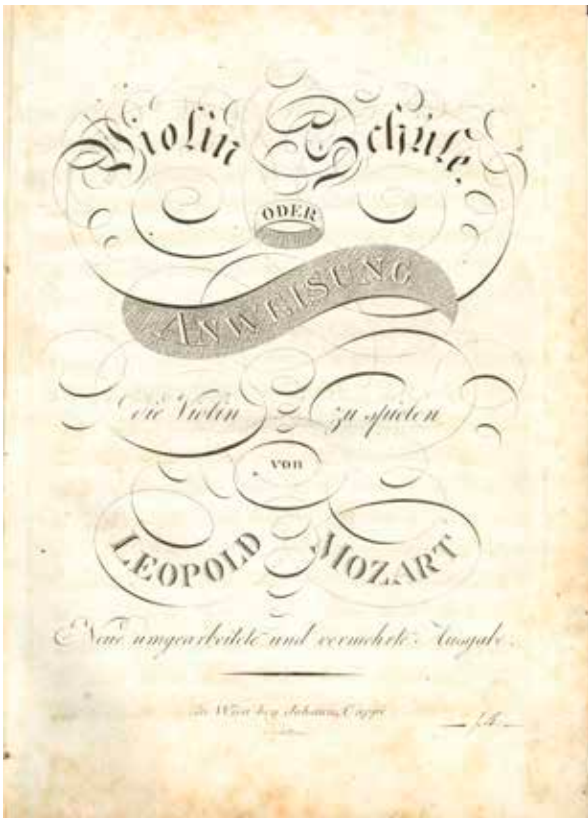 Violin Schule.
ODER
ANWEISUNG
die Violin zu spielen
von
LEOPOLD MOZART
Neue umgearbeitete und vermehrte Ausgabe.
in Wien bey Johann Cappi